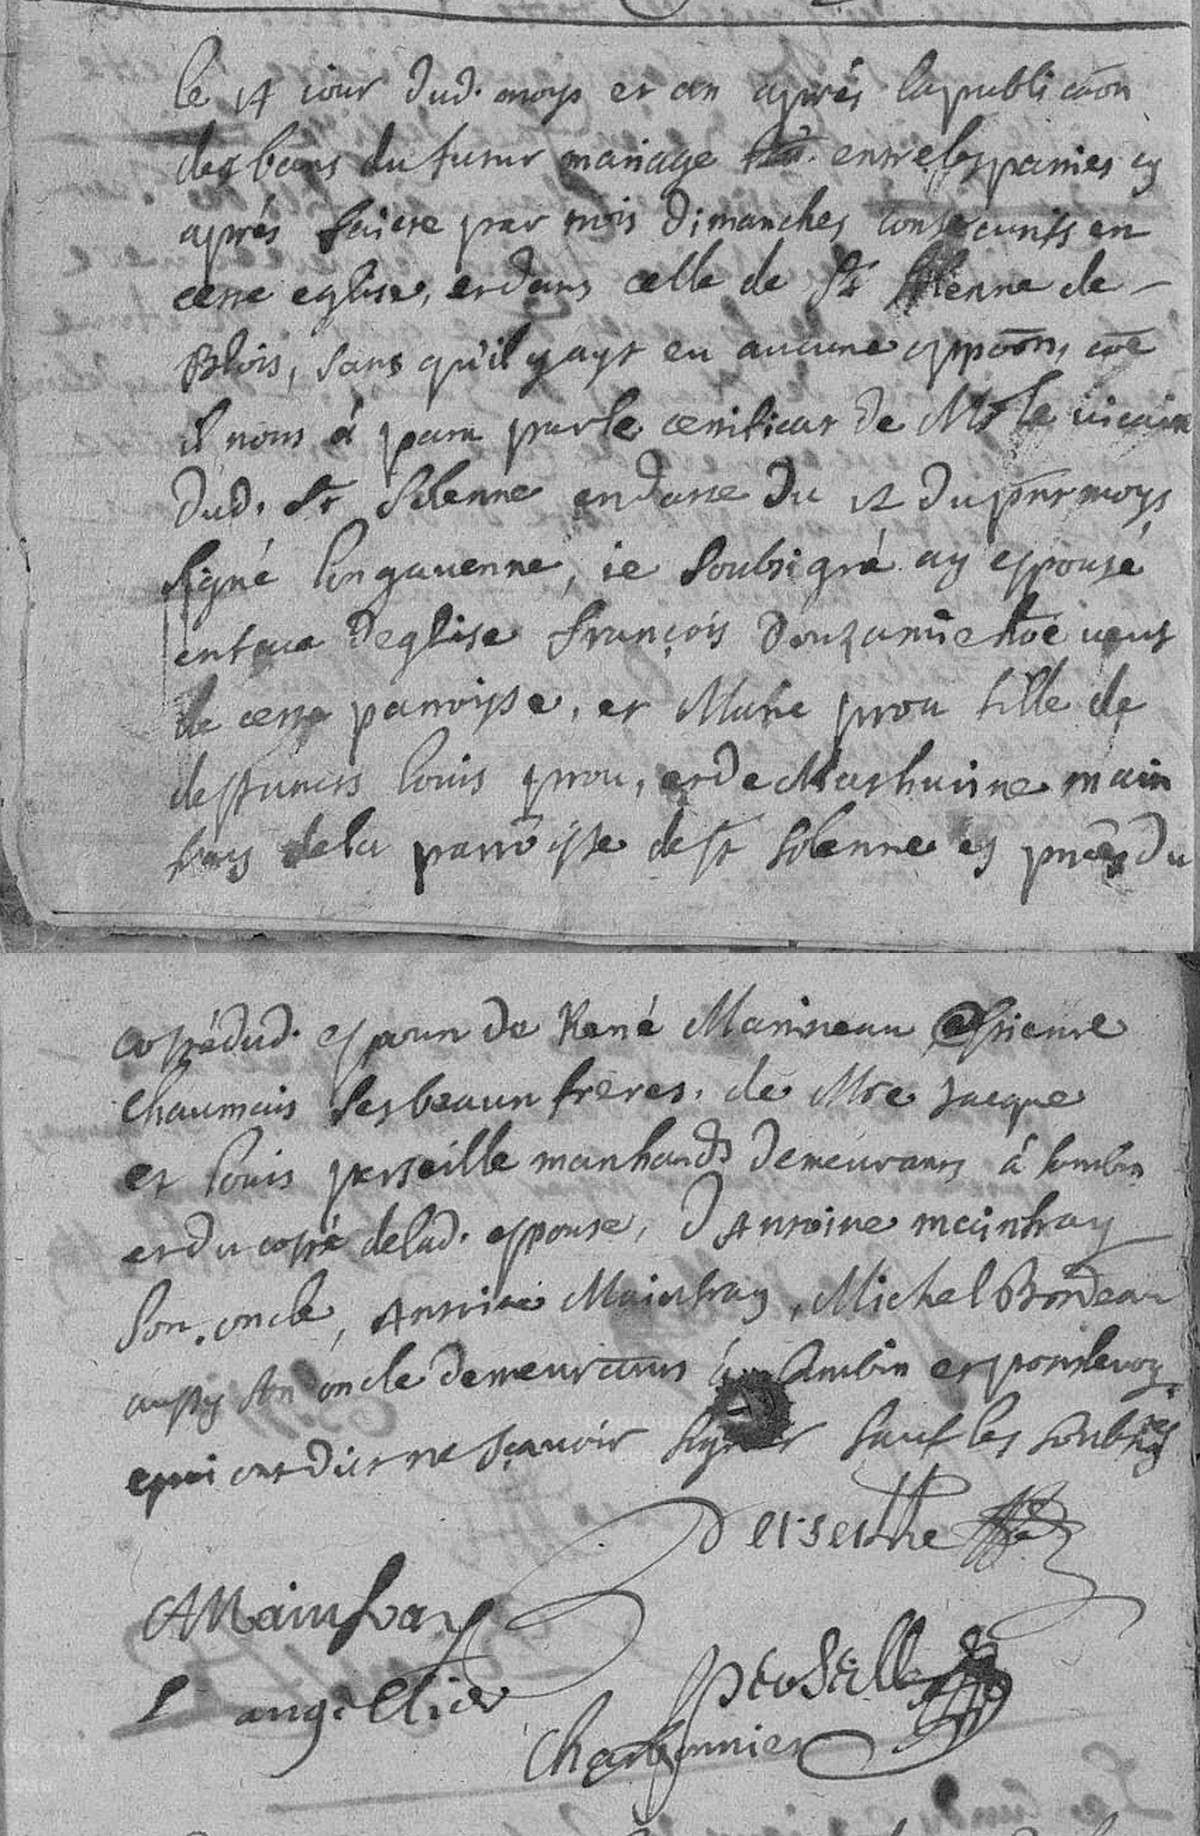 le 14 iour dud. moys et an aprés la publicãon
des bans du futur mariage entre les parties cy
aprés faicte par trois dimanches consecutifs en
cette eglise, et dans celle de St Solenne de
Blois, sans qu'il y ayt eu aucune oppõon, cõe
il nous á paru par le certificat de Mr le vicaire
dud. St Solenne en datte du 12 du pnt moys
signé Longavenne, ie soubsigné ay espousé
en face d'eglise François veuf
de cette parroisse, et Marie prou fille de
deffuncts Louis prou, et de Mathurine main
fray de la parroisse de St Solenne es pnces du
costé dud. espoux de René Marineau Estienne
Chaumais ses beaux freres. de Mre Jacque
et Louis perseille marchands demeurants á
et du costé de lad. espouse, d'Antoine mainfray
son oncle, Antoine Mainfray, Michel Bordeau
aussy son oncle demeurants á et pontlevoy
qui ont dict ne sçavoir signer sauf les soubsignes
Perseille
AMainfray
perseille
L angellier
Charbonnier